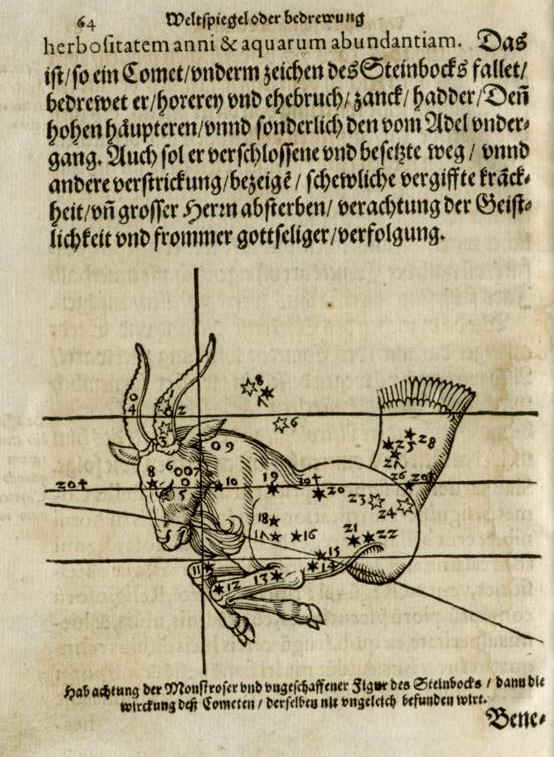 64 Weltspiegel oder bedrewung
herbositatem anni & aquarum abundantiam. Das
ist/so ein Comet/vnderm zeichen des Steinbocks fallet/
bedrewet er/horerey vnd ehebruch/zanck/hadder/Den̄
hohen häupteren/vnnd sonderlich den vom Adel vnder-
gang. Auch sol er verschlossene vnd besetzte weg/vnnd
andere verstrickung/bezeigē/schewliche vergiffte kräck-
heit/vn̄ grosser Herrn absterben/verachtung der Geist-
lichkeit vnd frommer gottseliger/verfolgung.
8
7
4 1 2
6
3
0 9
28
25
27
8 6 007
5
204
10
19
204
20
26
204
23
24
18
17 16
21 22
15
14
11
12
13
Hab achtung der Monstroser vnd vngeschaffener Figur des Steinbocks / dann die
wirckung deß Cometen / derselben nit vngeleich befunden wirt.
Bene-